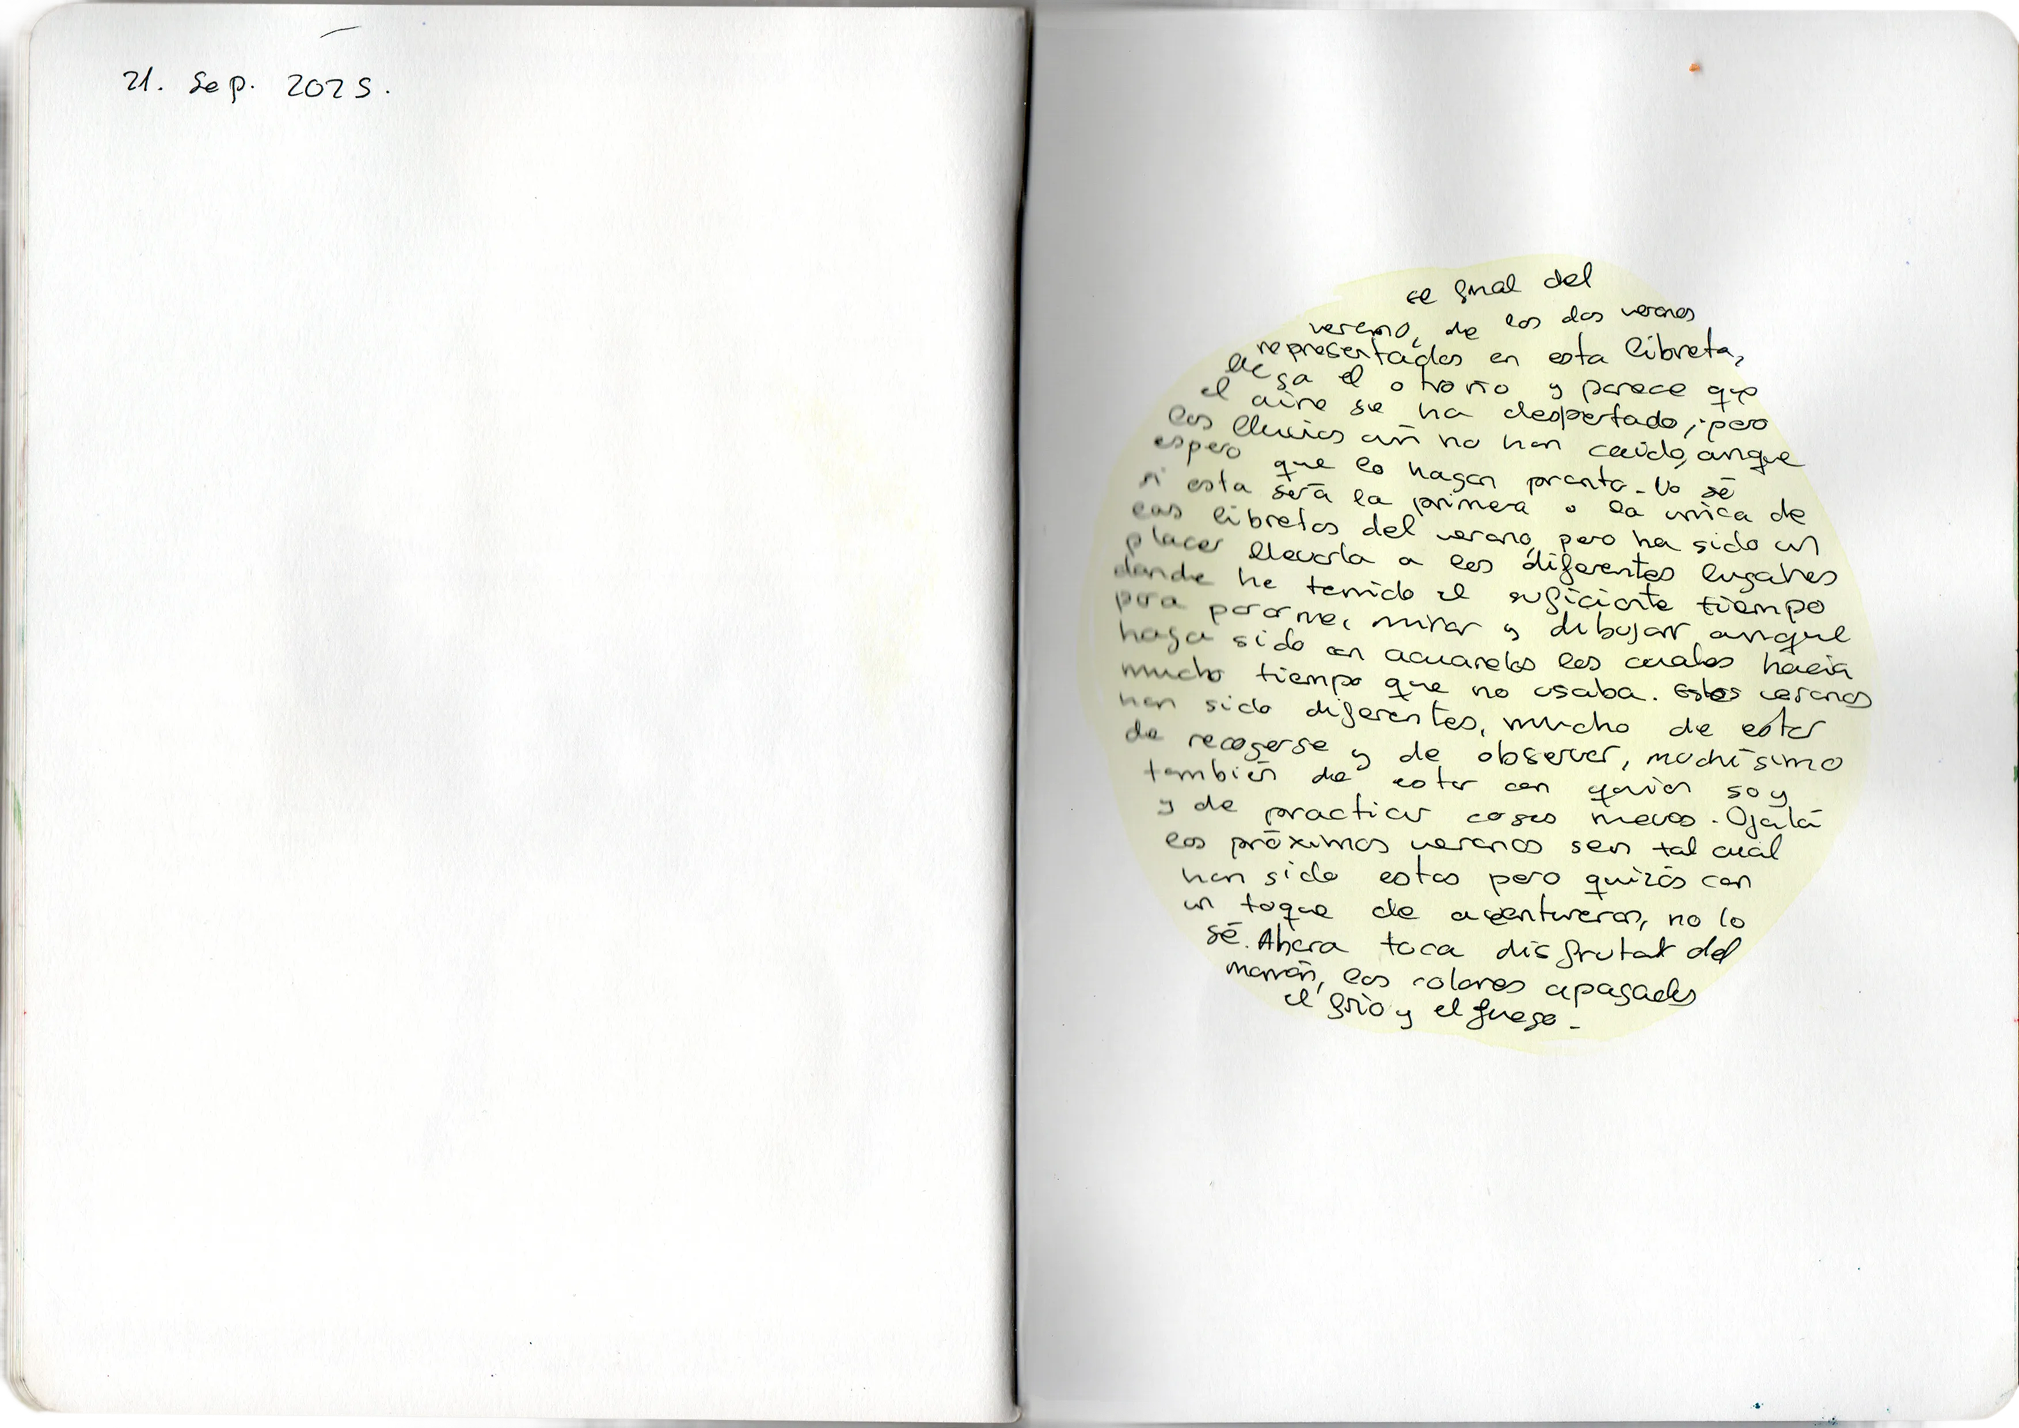 21. Sep. 2025.
el final del
verano, de los dos veranos
representados en esta libreta,
llega el otoño y parece que
el aire se ha despertado, pero
las lluvias aún no han caído, aunque
espero que lo hagan pronto. No sé
si esta será la primera o la única de
las libretas del verano, pero ha sido un
placer llevarla a los diferentes lugares
donde he tenido el suficiente tiempo
para pararme, mirar y dibujar, aunque
haya sido con acuarelas las cuales hacía
mucho tiempo que no usaba. Estos veranos
han sido diferentes, mucho de estar
de recogerse y de observar, muchísimo
también de estar con quien soy
y de practicar cosas nuevas. Ojalá
los próximos veranos sean tal cual
han sido estos pero quizás con
un toque de aventureros, no lo
sé. Ahora toca disfrutar del
marrón, los colores apagados
el frío y el fuego.